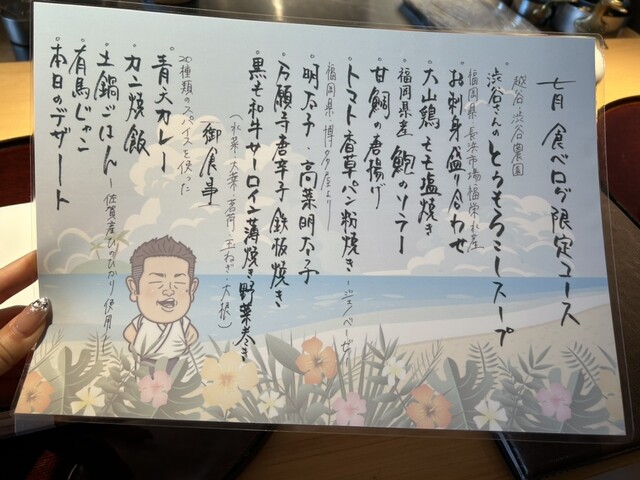 七月 食べログ限定コース
越谷 渋谷農園
渋谷さんのとうもろこしスープ
福岡県 長浜市場 福栄水産
お刺身盛り合わせ
大山鶏 もも塩焼き
福岡県産 鮑のソテー
甘鯛の唐揚げ
トマト香草パン粉焼き-ジェノベーゼ-
福岡県 博多屋より
明太子・高菜明太子
万願寺唐辛子 鉄板焼き
黒毛和牛サーロイン薄焼き野菜巻き
(水菜・大葉・茗荷・玉ねぎ・大根)
御食事
20種類のスパイスを使った
青大カレー
カニ焼飯
土鍋ごはん-佐賀産ひのひかり使用-
有馬じゃこ
本日のデザート